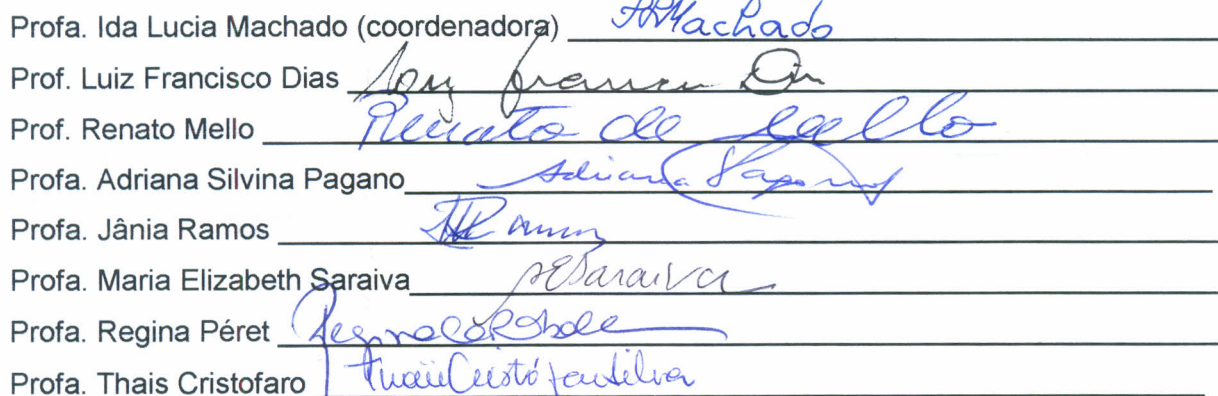 Profa. Ida Lucia Machado (coordenadora) Machado
Prof. Luiz Francisco Dias
Prof. Renato Mello Renato de Mello
Profa. Adriana Silvina Pagano Adriana Pagano
Profa. Jânia Ramos Ramos
Profa. Maria Elizabeth Saraiva MESaraiva
Profa. Regina Péret
Profa. Thais Cristofaro Thaïs Cristófaro Silva